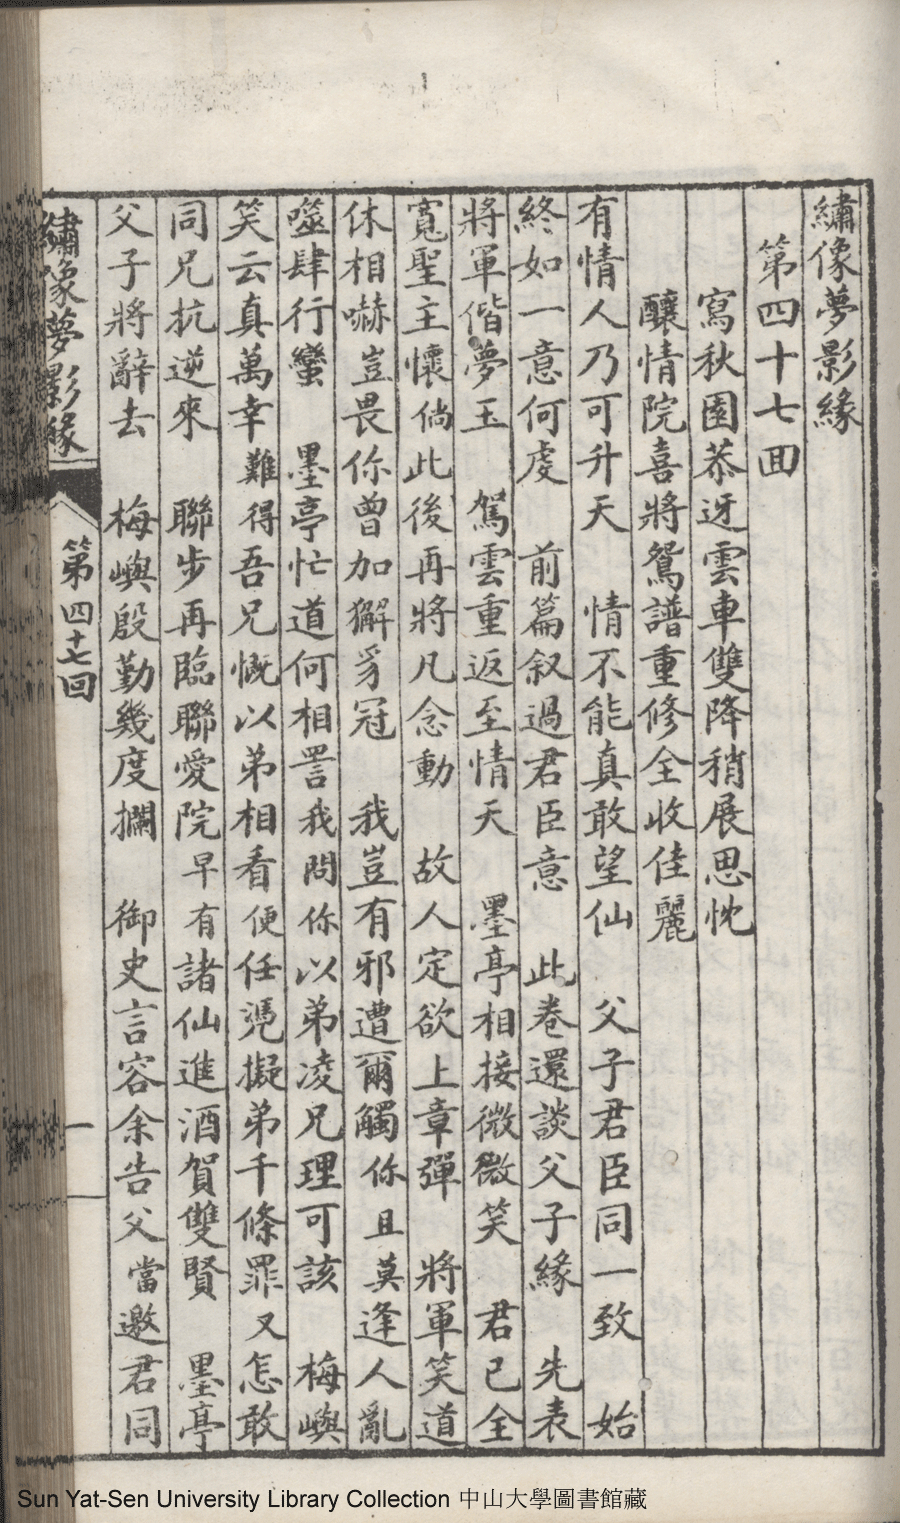 繡像夢影緣
第四十七回
寫秋園恭迓雲車雙降稍展思忱
釀情院喜將鴛譜重修全收佳麗
有情人乃可升天　情不能真敢望仙　父子君臣同一致　始
終如一意何虔　前篇叙過君臣意　此卷還談父子緣　先表
將軍偕夢玉　駕雲重返至情天　墨亭相接微微笑　君已全
寬聖主懷倘此後再將凡念動　故人定欲上章彈　將軍笑道
休相嚇豈畏你曾加獬豸冠　我豈有邪遭爾觸你且莫逢人亂
噬肆行蠻　墨亭忙道何相詈我問你以弟凌兄理可該　梅嶼
笑云真萬幸難得吾兄慨以弟相看便任凴擬弟千條罪又怎敢
同兄抗逆來　聯步再臨聯愛院早有諸仙進酒賀雙賢　墨亭
父子將辭去　梅嶼殷勤幾度攔　御史言容余告父當邀君同
繡像夢影緣　第四十七回
Sun Yat-Sen University Library Collection 中山大學圖書館藏